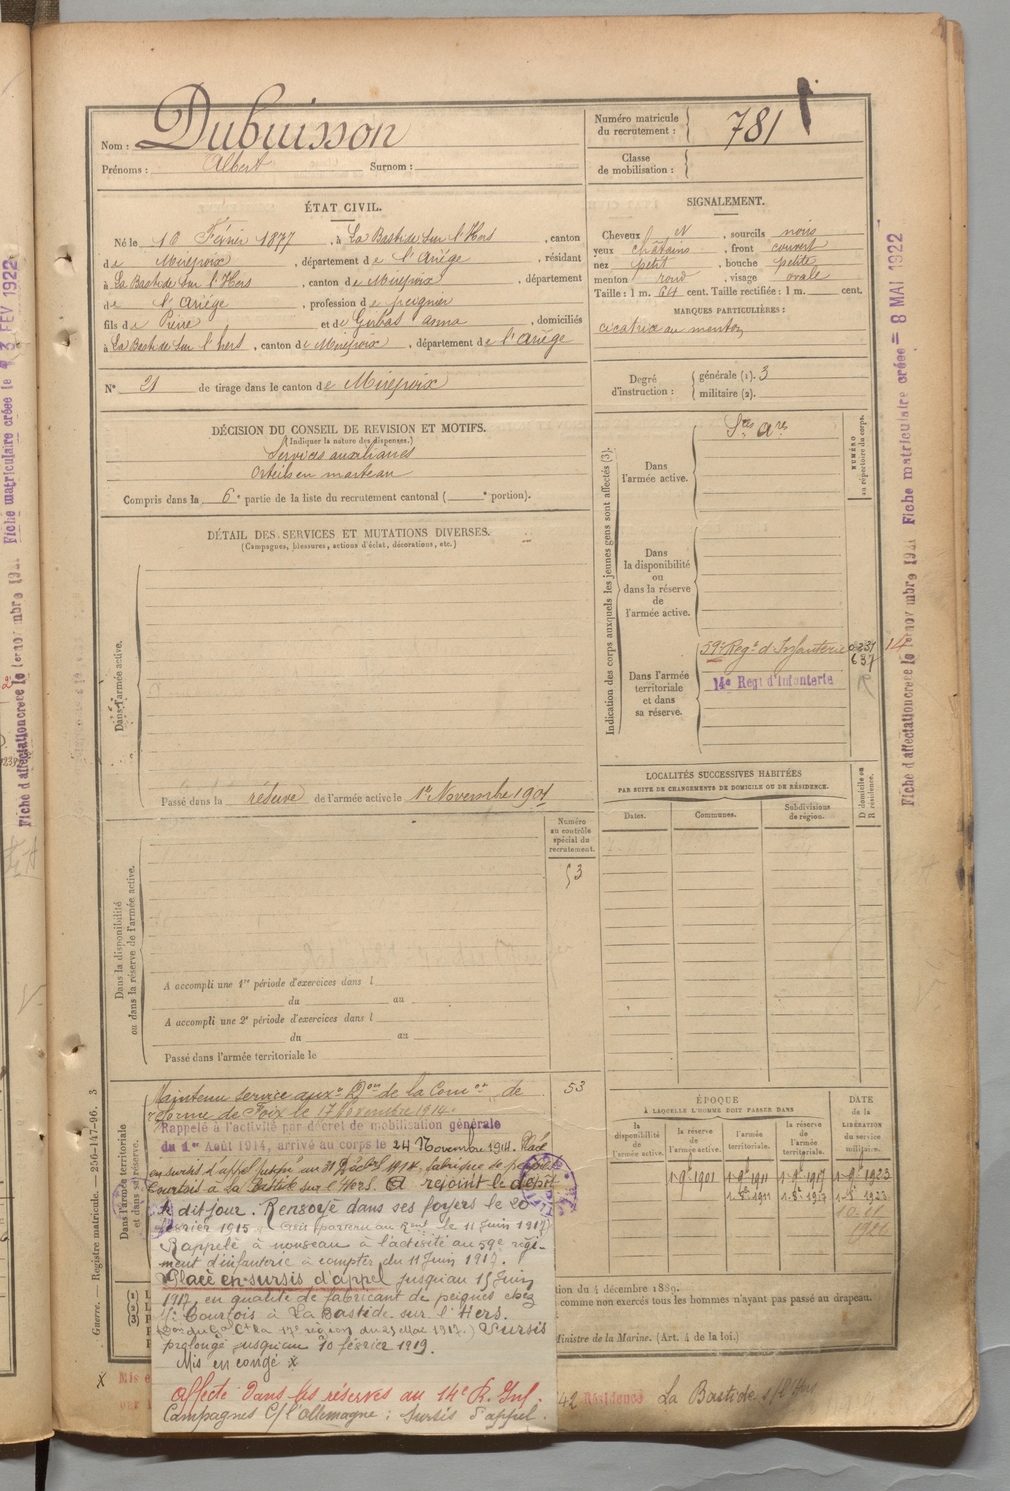 Nom : Dubuisson
Prénoms : Albert Surnom :
Numéro matricule du recrutement : 781
Classe de mobilisation :
ÉTAT CIVIL.
Né le 10 Février 1877, à La Bastide sur l'Hers, canton
de Mirepoix, département de l'Ariège, résidant
à La Bastide sur l'Hers, canton de Mirepoix, département
de l'Ariège, profession de peignier
fils de Pierre et de Girbas Anna, domiciliés
à La Bastide sur l'hers, canton de Mirepoix, département de l'Ariège
N° 21 de tirage dans le canton de Mirepoix
SIGNALEMENT.
Cheveux N, sourcils noirs
yeux châtains, front couvert
nez petit, bouche petite
menton rond, visage ovale
Taille : 1 m. 64 cent. Taille rectifiée : 1 m. cent.
MARQUES PARTICULIÈRES :
cicatrice au menton
Degré d'instruction : générale (1). 3
militaire (2).
DÉCISION DU CONSEIL DE REVISION ET MOTIFS.
(Indiquer la nature des dispenses.)
Services auxiliaires
Orteils en marteau
Compris dans la 6e partie de la liste du recrutement cantonal ( e portion).
DÉTAIL DES SERVICES ET MUTATIONS DIVERSES.
(Campagnes, blessures, actions d'éclat, décorations, etc.)
Dans l'armée active.
Passé dans la réserve de l'armée active le 1er Novembre 1901
Indication des corps auxquels les jeunes gens sont affectés (3).
NUMÉRO au répertoire du corps.
Dans l'armée active.
Dans la disponibilité ou dans la réserve de l'armée active.
Dans l'armée territoriale et dans sa réserve.
59e Regt d'Infanterie
14e Regt d'Infanterie
LOCALITÉS SUCCESSIVES HABITÉES
PAR SUITE DE CHANGEMENTS DE DOMICILE OU DE RÉSIDENCE.
Dates. Communes. Subdivisions de région. D domicile ou R résidence.
Numéro au contrôle spécial du recrutement.
53
Dans la disponibilité ou dans la réserve de l'armée active.
A accompli une 1re période d'exercices dans l
du au
A accompli une 2e période d'exercices dans l
du au
Passé dans l'armée territoriale le
Dans l'armée territoriale et dans sa réserve.
53
Maintenu service auxre Don de la Comon de
réforme de Foix le 17 Novembre 1914.
Rappelé à l'activité par décret de mobilisation générale
du 1er Août 1914, arrivé au corps le 24 Novembre 1914. Placé
en sursis d'appel jusqu'au 31 Décbre 1914, fabrique de peignes
Courtois à La Bastide sur l'Hers. A rejoint le dépôt
le dit jour. Renvoyé dans ses foyers le 20
février 1915
Rappelé à nouveau à l'activité au 59e régi-
ment d'infanterie à compter du 11 Juin 1917.
Placé en sursis d'appel jusqu'au 15 Juin
1917, en qualité de fabricant de peignes chez
Mr Courtois à La Bastide sur l'Hers.
Sursis
prolongé jusqu'au 10 février 1919.
Mis en congé x
Affecté dans les réserves au 14e R. Inf.
Campagnes C/ l'Allemagne : Sursis d'appel.
ÉPOQUE
À LAQUELLE L'HOMME DOIT PASSER DANS
la disponibilité de l'armée active. la réserve de l'armée active. l'armée territoriale. la réserve de l'armée territoriale.
DATE de la LIBÉRATION du service militaire.
1-9bre 1901 1-9bre 1911 1-9bre 1917 1-9bre 1923
1-8bre 1911 1-8bre 1917 1-8bre 1923
tion du 4 décembre 1889.
comme non exercés tous les hommes n'ayant pas passé au drapeau.
Ministre de la Marine. (Art. 4 de la loi.)
42 Résidence La Bastide s/ l'Hers
Guerre. — Registre matricule. — 256-147-96. 3
Fiche d'affectation créée le 1er novembre 1921 Fiche matriculaire créée = 8 MAI 1922
Fiche d'affectation créée le 1er novembre 1921 Fiche matriculaire créée le 3 FEV 1922